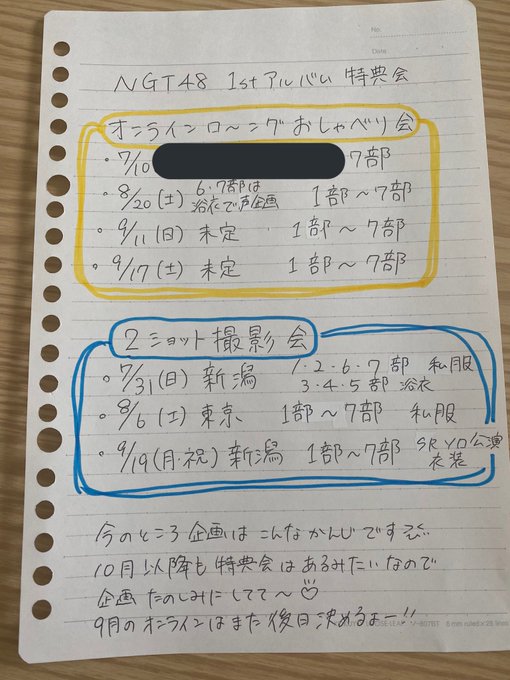 No.
Date
NGT48 1stアルバム 特典会
オンラインローングおしゃべり会
・7/10 7部
・8/20(土) 6・7部は 浴衣で声企画 1部〜7部
・9/11(日) 未定 1部〜7部
・9/17(土) 未定 1部〜7部
2ショット撮影会
・7/31(日) 新潟 1・2・6・7部 私服
3・4・5部 浴衣
・8/6(土) 東京 1部〜7部 私服
・9/19(月・祝) 新潟 1部〜7部 公演
衣装
今のところ企画はこんなかんじです
10月以降も特典会はあるみたいなので
企画たのしみにしてて〜
9月のオンラインはまた後日決めるよー!!
6 mm ruled×28 lines